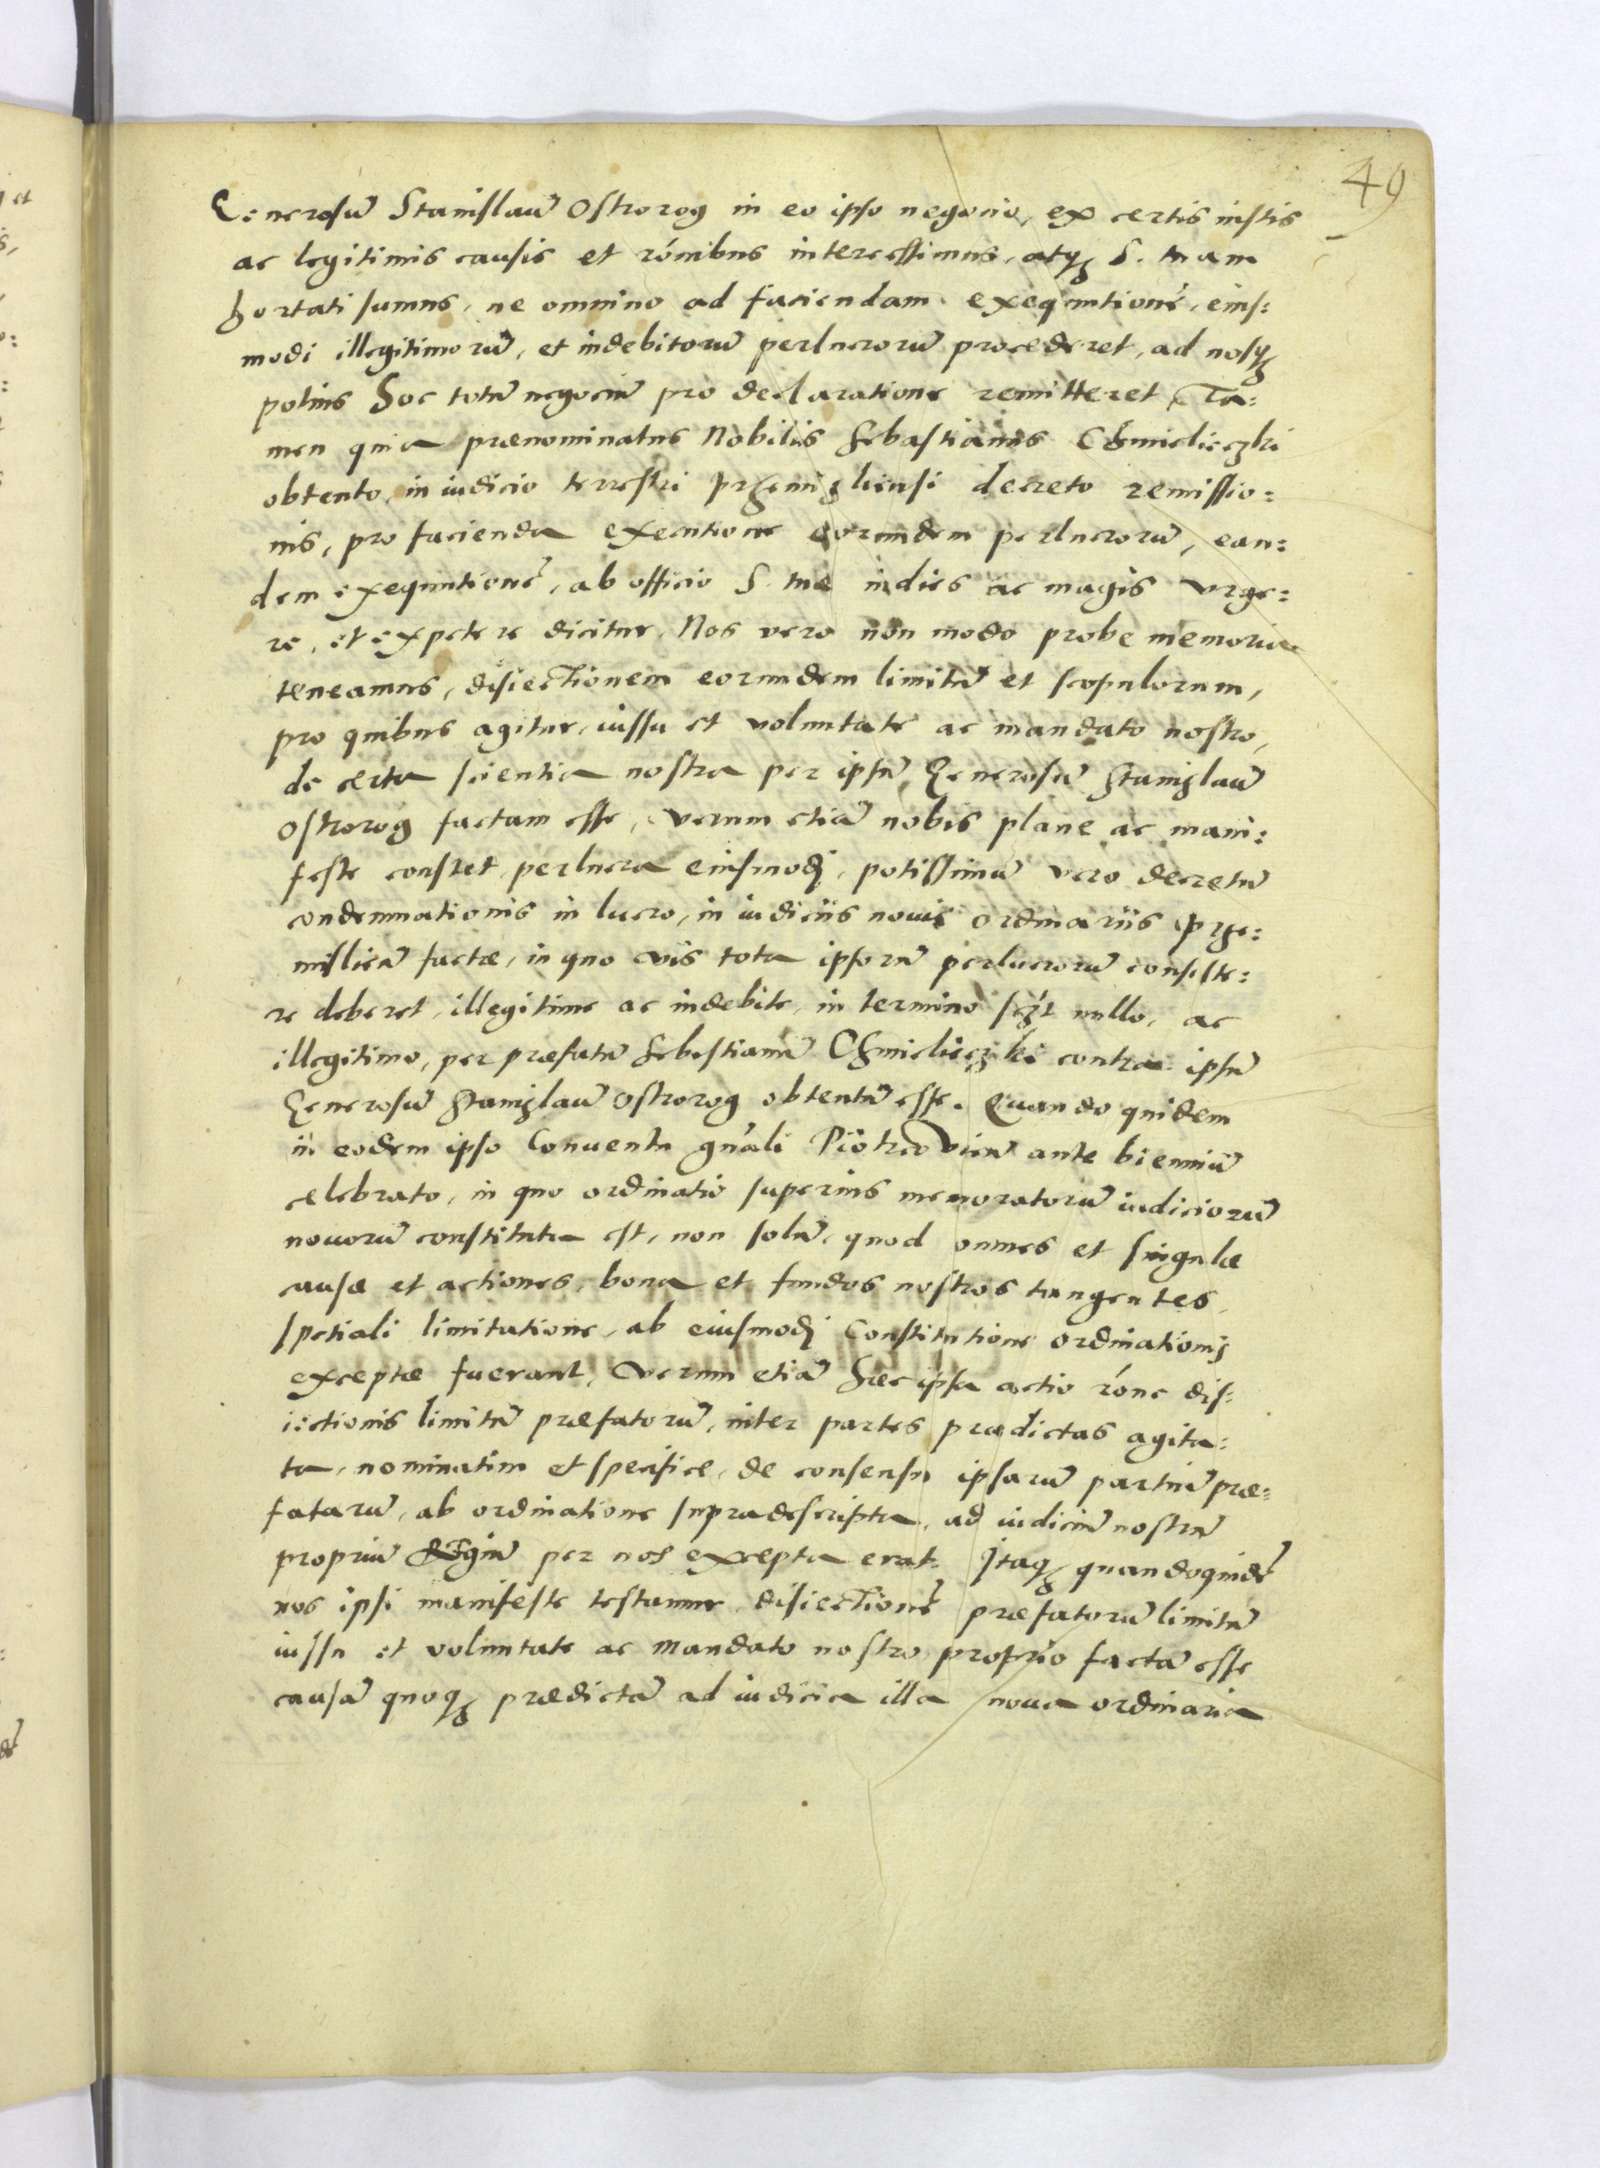 49
Generosũ Stanislaũ Ostrorog in eo ipso negocio, ex certis iustis
ac legitimis causis et rõnibus intercessimus, atq; S. tuam
hortati sumus, ne omnino ad faciendam exequutionẽ, eius:
modi illegitimorũ, et indebitorũ perlucrorũ procederet, ad nosq;
potius hoc totũ negociũ pro declaratione remitteret, Ta:
men quia prænominatus Nobilis Sebastianus Chmielieczki
obtento, in iudicio terrestri Przemigliensi decreto remissio:
nis, pro facienda executione eorundem perlucrorũ, ean:
dem exequutionẽ, ab officio S. tuæ indies ac magis vrge:
re, et expetere dicitur, Nos vero non modo probe memoria
teneamus, disiectionem eorundem limitũ et scopulorum,
pro quibus agitur, iussu et voluntate ac mandato nostro,
de certa scientia nostra per ipsũ Generosũ Stanizlaũ
Ostrorog factam esse, verum etiã nobis plane ac mani:
feste constet, perlucra eiusmodj, potissimũ vero decretũ
condemnationis in lucro, in iudiciis nouis ordinariis Prze:
misliẽ factæ, in quo vis tota ipsorũ perlucrorũ consiste:
re deberet, illegitime ac indebite, in termino scz̃t nullo, ac
illegitimo, per præfatũ Sebestianũ Chmielieczki contra ipsũ
Generosũ Stanizlaũ Ostrorog obtentũ esse. Quando quidem
in eodem ipso Conuentu gnãli Piotrcouieñ ante bienniũ
celebrato, in quo ordinatio superius memoratorũ iudiciorũ
nouorũ constituta est, non solũ, quod omnes et singulæ
causæ et actiones, bona et fundos nostros tangentes,
spetiali limitatione, ab eiusmodj Constitutione ordinationis
exceptæ fuerant, Verum etiã hæc ipsa actio rõne dis:
iectionis limitũ præfatorũ, inter partes prædictas agita:
ta, nominatim et specifice, de consensu ipsarũ partiũ præ:
fatarũ, ab ordinatione supradescripta, ad iudiciũ nostrũ
propriũ Regiũ per nos excepta erat. Itaq; quandoquidẽ
nos ipsi manifeste testamur disiectionẽ præfatorũ limitũ
iussu et voluntate ac mandato nostro proprio factã esse
causã quoq; prædictã ad iudicia illa noua ordinaria